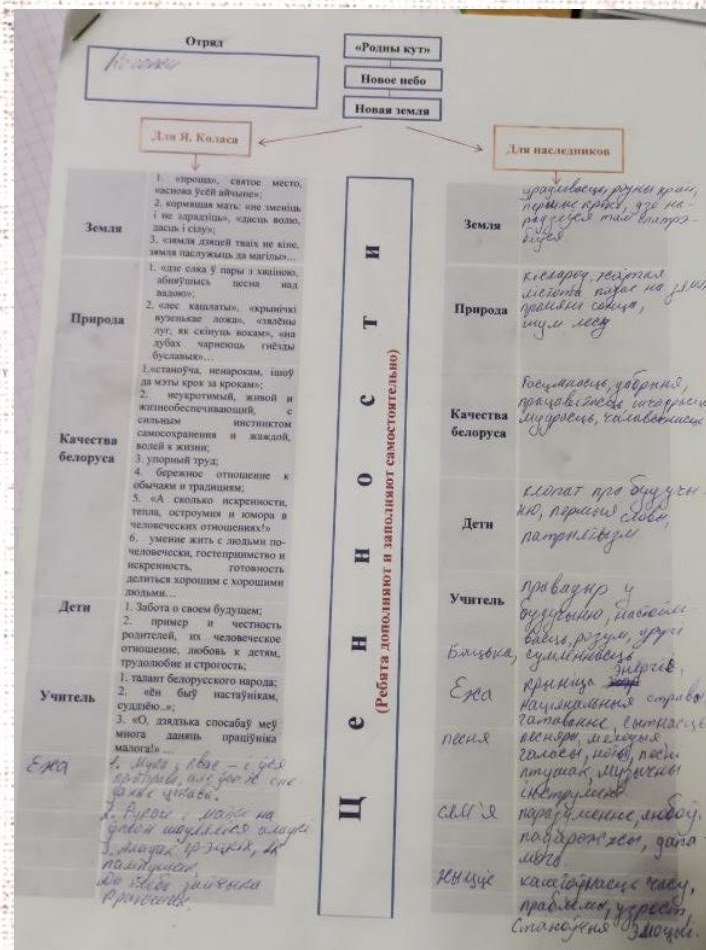 Отряд
«Родны кут»
Новое небо
Новая земля
Для Я. Коласа
Для наследников
Земля
1. «проща», святое место,
«аснова ўсёй айчыне»;
2. кормящая мать: «не зменіць
і не здрадзіць», «дасць волю,
дасць і сілу»;
3. «зямля дзяцей тваіх не кіне,
зямля паслужыць да магілы»...
Природа
1. «дзе елка ў пары з хваіною,
абняўшысь цесна над
вадою»;
2. «лес кашлаты», «крынічкі
вузенькае ложа», «зялёны
луг, як скінуць вокам», «на
дубах чарнеюць гнёзды
буславыя»...
Качества
белоруса
1.«станоўча, ненарокам, ішоў
да мэты крок за крокам»;
2. неукротимый, живой и
жизнеобеспечивающий, с
сильным инстинктом
самосохранения и жаждой,
волей к жизни;
3. упорный труд;
4. бережное отношение к
обычаям и традициям;
5. «А сколько искренности,
тепла, остроумия и юмора в
человеческих отношениях!»
6. умение жить с людьми по-
человечески, гостеприимство и
искренность, готовность
делиться хорошим с хорошими
людьми...
Дети
1. Забота о своем будущем;
2. пример и честность
родителей, их человеческое
отношение, любовь к детям,
трудолюбие и строгость;
Учитель
1. талант белорусского народа;
2. «ён быў настаўнікам,
суддзёю..»;
3. «О, дзядзька спосабаў меў
многа даняць працаўніка
малога!» ...
Ежа
1. Мука, квас – і ўся
3. Аладак грэцкіх,
зайчыка
Ценности
(Ребята дополняют и заполняют самостоятельно)
Земля
родны край,
дзе на-
радзіўся там спатрэ-
біўся
Природа
кісларод, жоўтая
лістота падае на
прамяні сонца,
шум лесу
Качества
белоруса
дабрыня,
працавітасць
мудрасць, чалавечнасць
Дети
клопат пра будучы-
ню, першыя словы,
патрыятызм
Учитель
правадыр у
будучыню,
розум, другі
Бацька, сумленнасць
Ежа
крыніца энергіі,
нацыянальныя стравы
гатаванне, сытнасць
песня
песняры, мелодыя
галасы, ноты,
птушак, музычны
інструмент
сям'я
паразуменне, любоў,
падарожжы, дапа-
мога
жыццё
каштоўнасць часу,
праблемы, узрост,
станоўчыя эмоцыі.